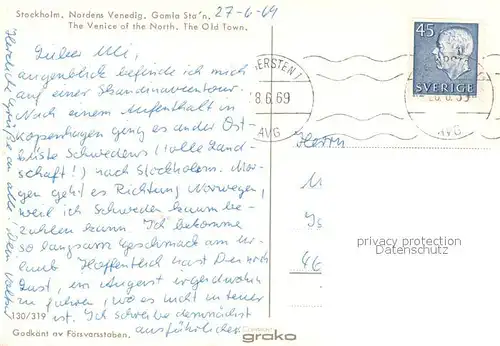 Stockholm. Nordens Venedig. Gamla Sta'n. 27-6-69
The Venice of the North. The Old Town.
Lieber Uli,
augenblick befinde ich mich
auf einer Skandinavientour.
Nach einem Aufenthalt in
Kopenhagen ging es an der Ost-
küste Schwedens (tolle Land-
schaft!) nach Stockholm. Mor-
gen geht es Richtung Norwegen,
weil ich Schweden kaum be-
zahlen kann. Ich bekomme
so langsam Geschmack am Ur-
laub. Hoffentlich hast Du noch
Lust, im August irgendwohin
zu fahren, wo es nicht so teuer
ist. Ich schreibe demnächst
ausführlicher
Herzliche Grüße an alle. Dein
130/319
Godkänt av Försvarsstaben.
45
SVERIGE
HERSTEN 1
8.6.69
AVG
AVG
Herrn
privacy protection
Datenschutz
grako